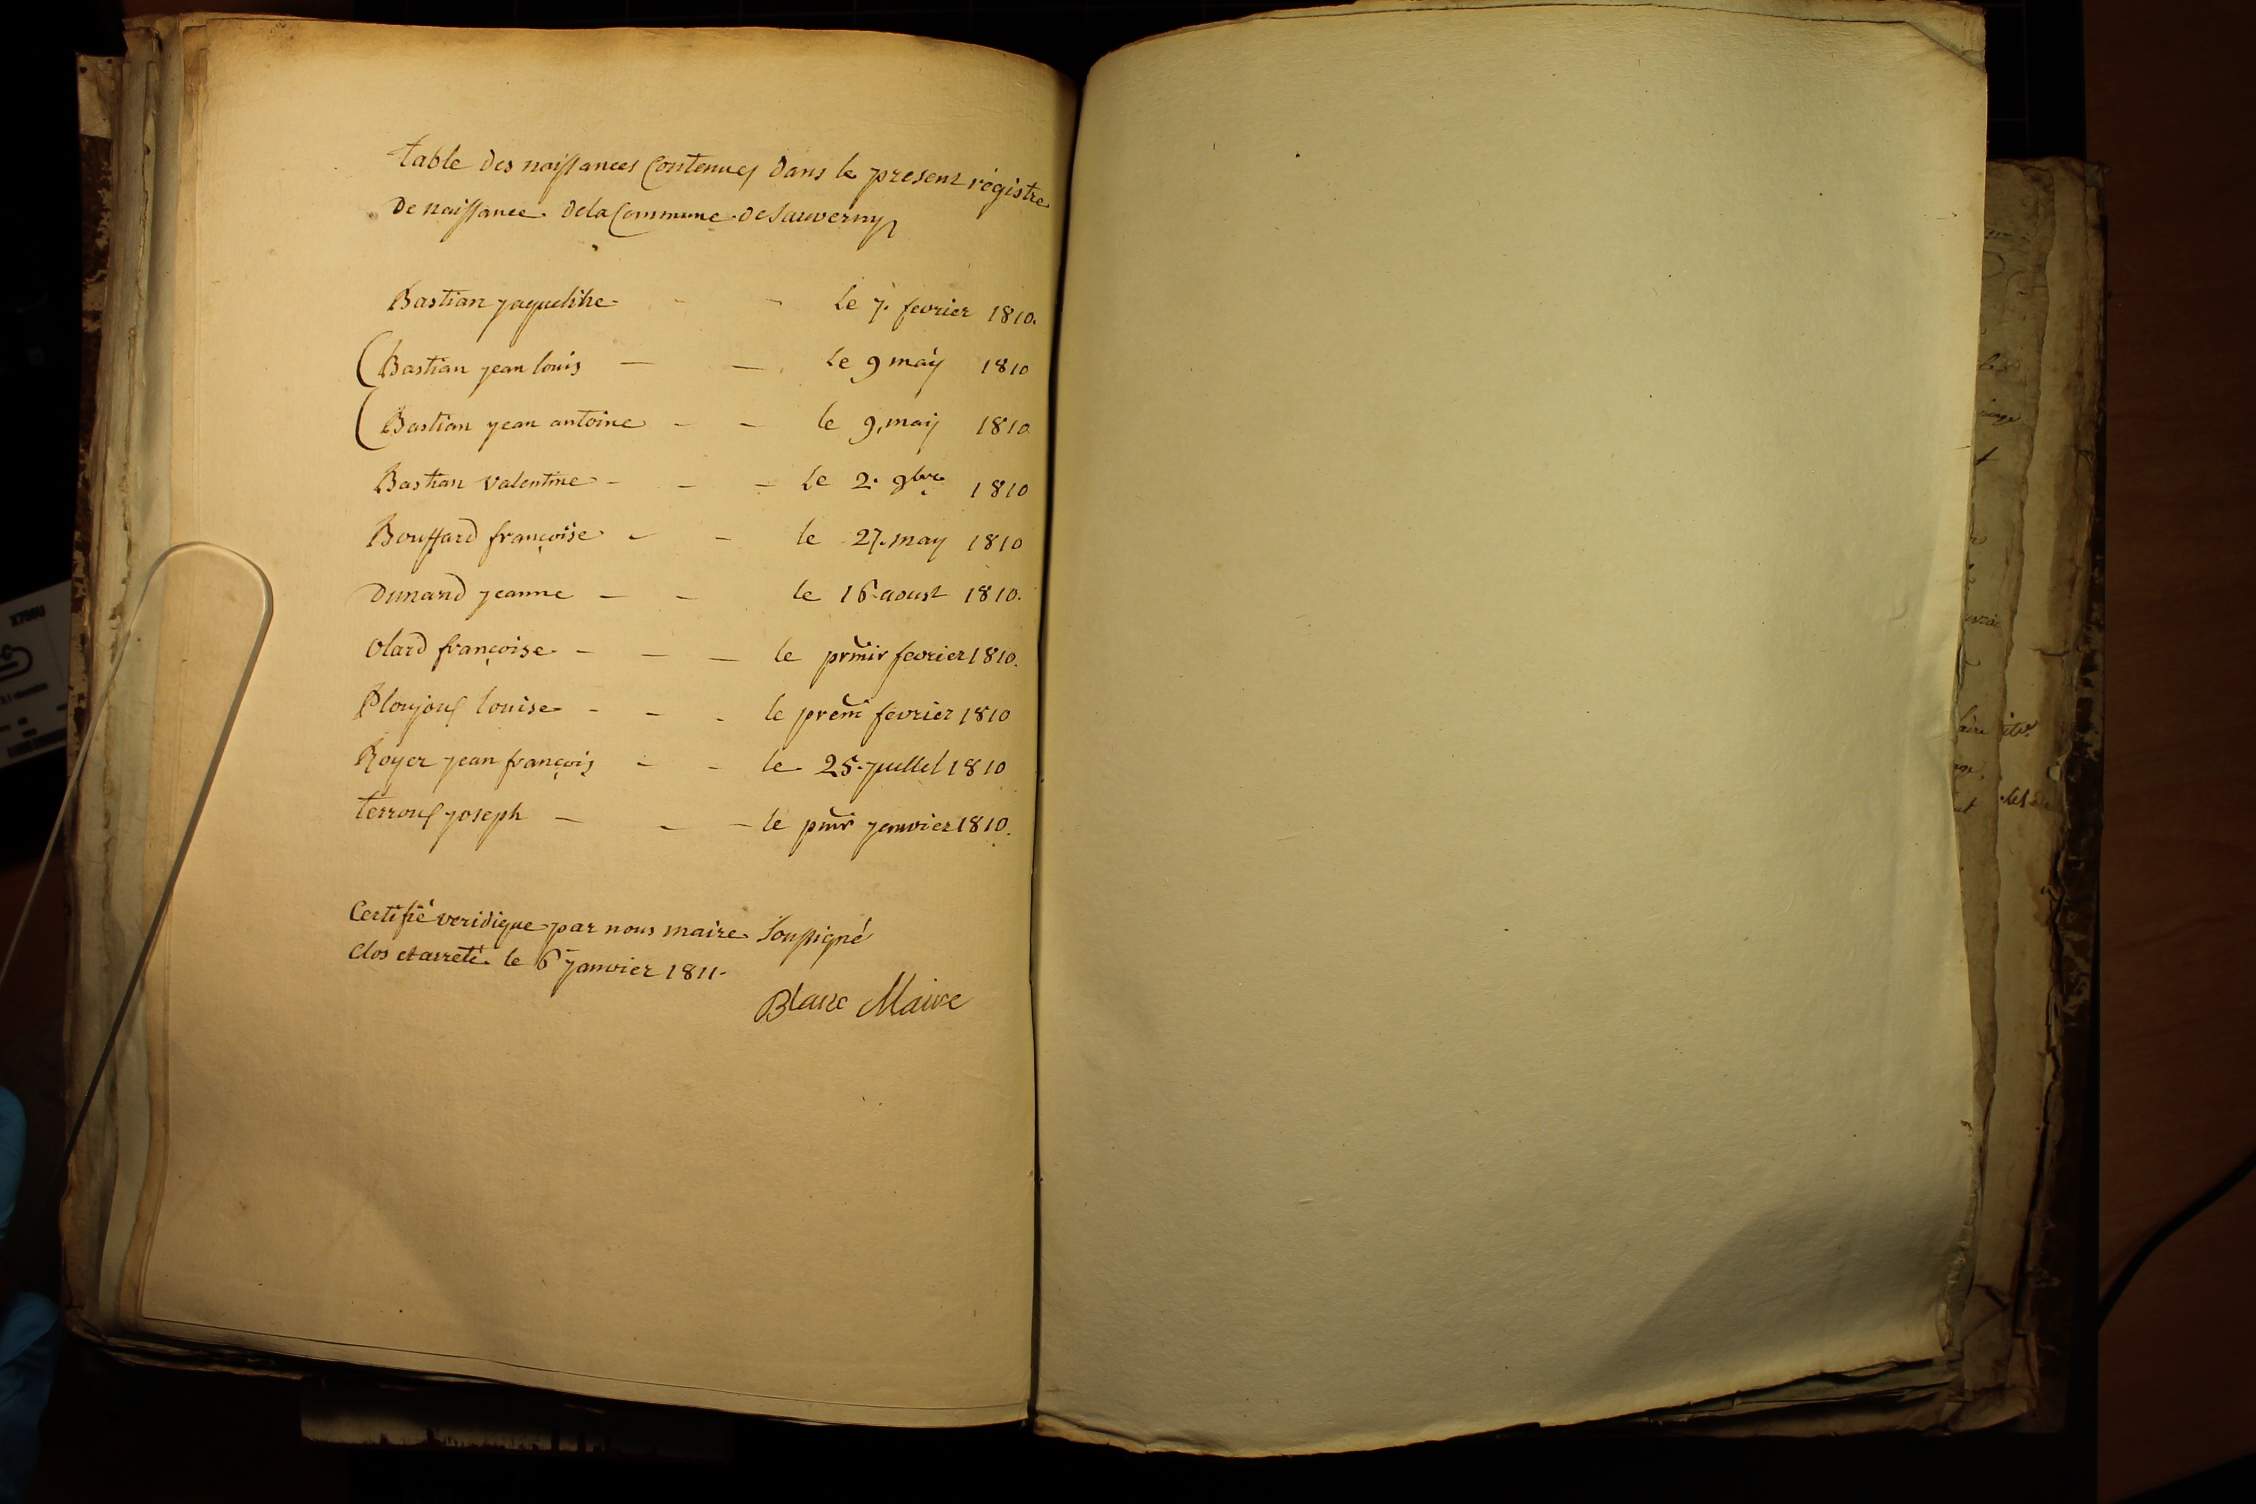 table des naissances Contenues dans le present régistre
De naissance de la Commune de Sauverny
Bastian jaqueline - - le 7. fevrier 1810.
(Bastian jean louis - - le 9 may 1810
(Bastian jean antoine - - le 9, may 1810
Bastian valentine - - - le 2. 9bre 1810
Bouffard françoise - - le 27. may 1810
Dunand jeanne - - le 16. aoust 1810.
Olard françoise - - - le prmir fevrier 1810.
Ploujous louise - - - le premi fevrier 1810
Royer jean françois - - le 25. juillet 1810
terrous joseph - - - le pmr janvier 1810.
Certifié veridique par nous maire soussigné
Clos et arreté le 6 janvier 1811.
Blanc Maire